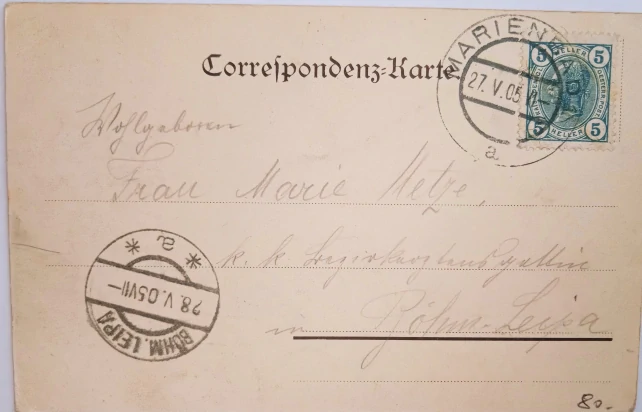 Correspondenz-Karte
MARIEN
27. V. 05
a
5 HELLER 5
5 HELLER 5
Wohlgeboren
Frau Marie Metze,
k. k. Bezirksarztensgattin
in Böhm.-Leipa
BÖHM. LEIPA
28. V. 05 VII–
a
80.-